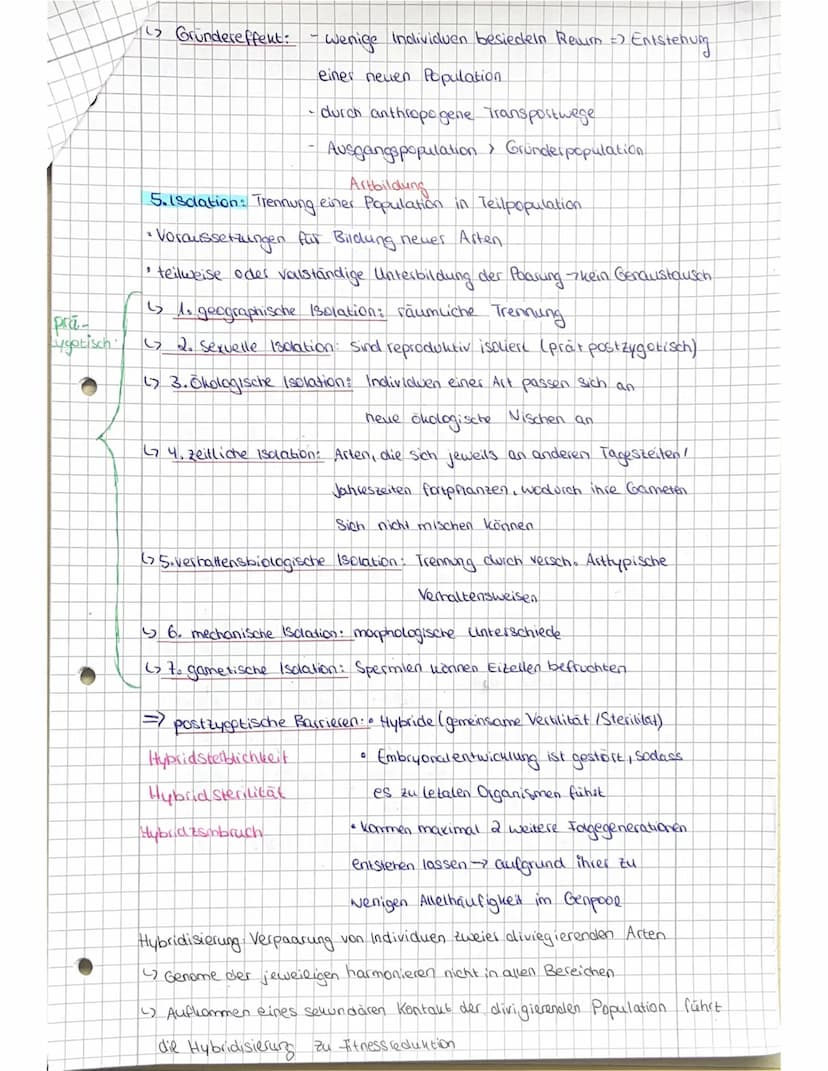 ↳ Gründereffekt: - wenige Individuen besiedeln Raum => Entstehung
einer neuen Population
- durch anthropogene Transportwege
- Ausgangspopulation > Gründerpopulation
Artbildung
5. Isolation: Trennung einer Population in Teilpopulation
• Voraussetzungen für Bildung neuer Arten
• teilweise oder vollständige Unterbildung der Paarung → kein Genaustausch
prä-
zygotisch:
↳ 1. geographische Isolation: räumliche Trennung
↳ 2. sexuelle Isolation: sind reproduktiv isoliert (prä+postzygotisch)
↳ 3. Ökologische Isolation: Individuen einer Art passen sich an
neue ökologische Nischen an
↳ 4. zeitliche Isolation: Arten, die sich jeweils an anderen Tageszeiten/
Jahreszeiten fortpflanzen, wodurch ihre Gameten
sich nicht mischen können
↳ 5. verhaltensbiologische Isolation: Trennung durch versch. Arttypische
Verhaltensweisen
↳ 6. mechanische Isolation: morphologische Unterschiede
↳ 7. gametische Isolation: Spermien können Eizellen befruchten
=> postzygotische Barrieren: • Hybride (gemeinsame Vertilität/Sterilität)
Hybridsterblichkeit • Embryonalentwicklung ist gestört, sodass
Hybridsterilität es zu letalen Organismen führt
Hybridzsmbruch • können maximal 2 weitere Folgegenerationen
entstehen lassen → aufgrund ihrer zu
wenigen Allelhäufigkeit im Genpool
Hybridisierung: Verpaarung von Individuen zweier diviegierenden Arten
↳ Genome der jeweiligen harmonieren nicht in allen Bereichen
↳ Aufkommen eines sekundären Kontakt der divigierenden Population führt
die Hybridisierung zu Fitnessreduktion